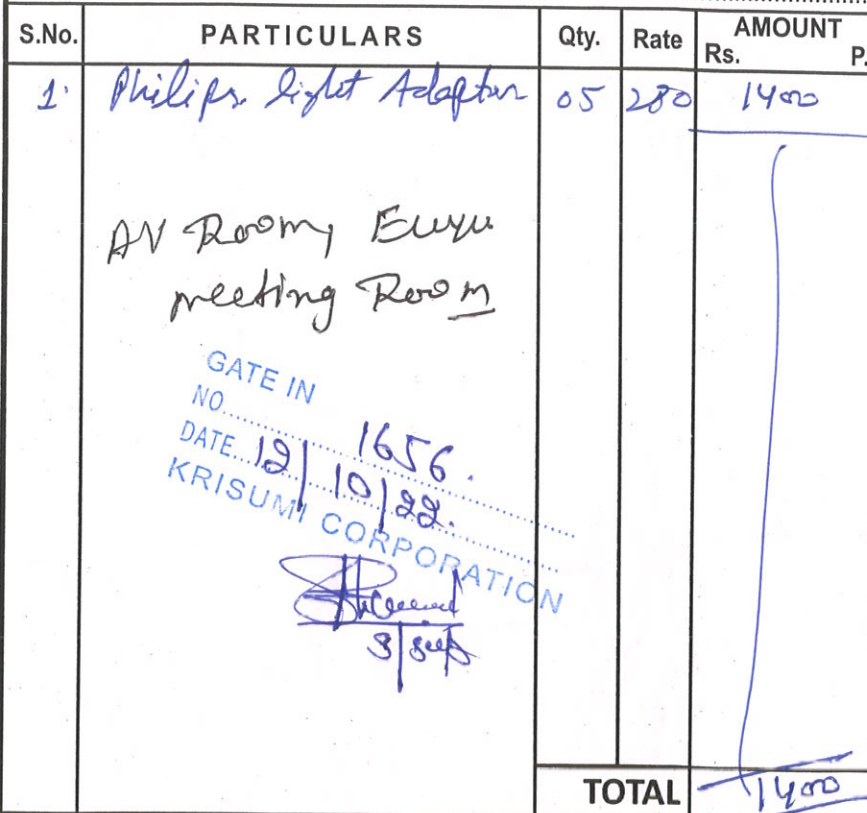 S.No. PARTICULARS Qty. Rate AMOUNT
Rs. P.
1. Philips light Adapter 05 280 1400
AV Room,
meeting Room
GATE IN
NO. 1656.
DATE 12/10/22.
KRISUMI CORPORATION
TOTAL 1400